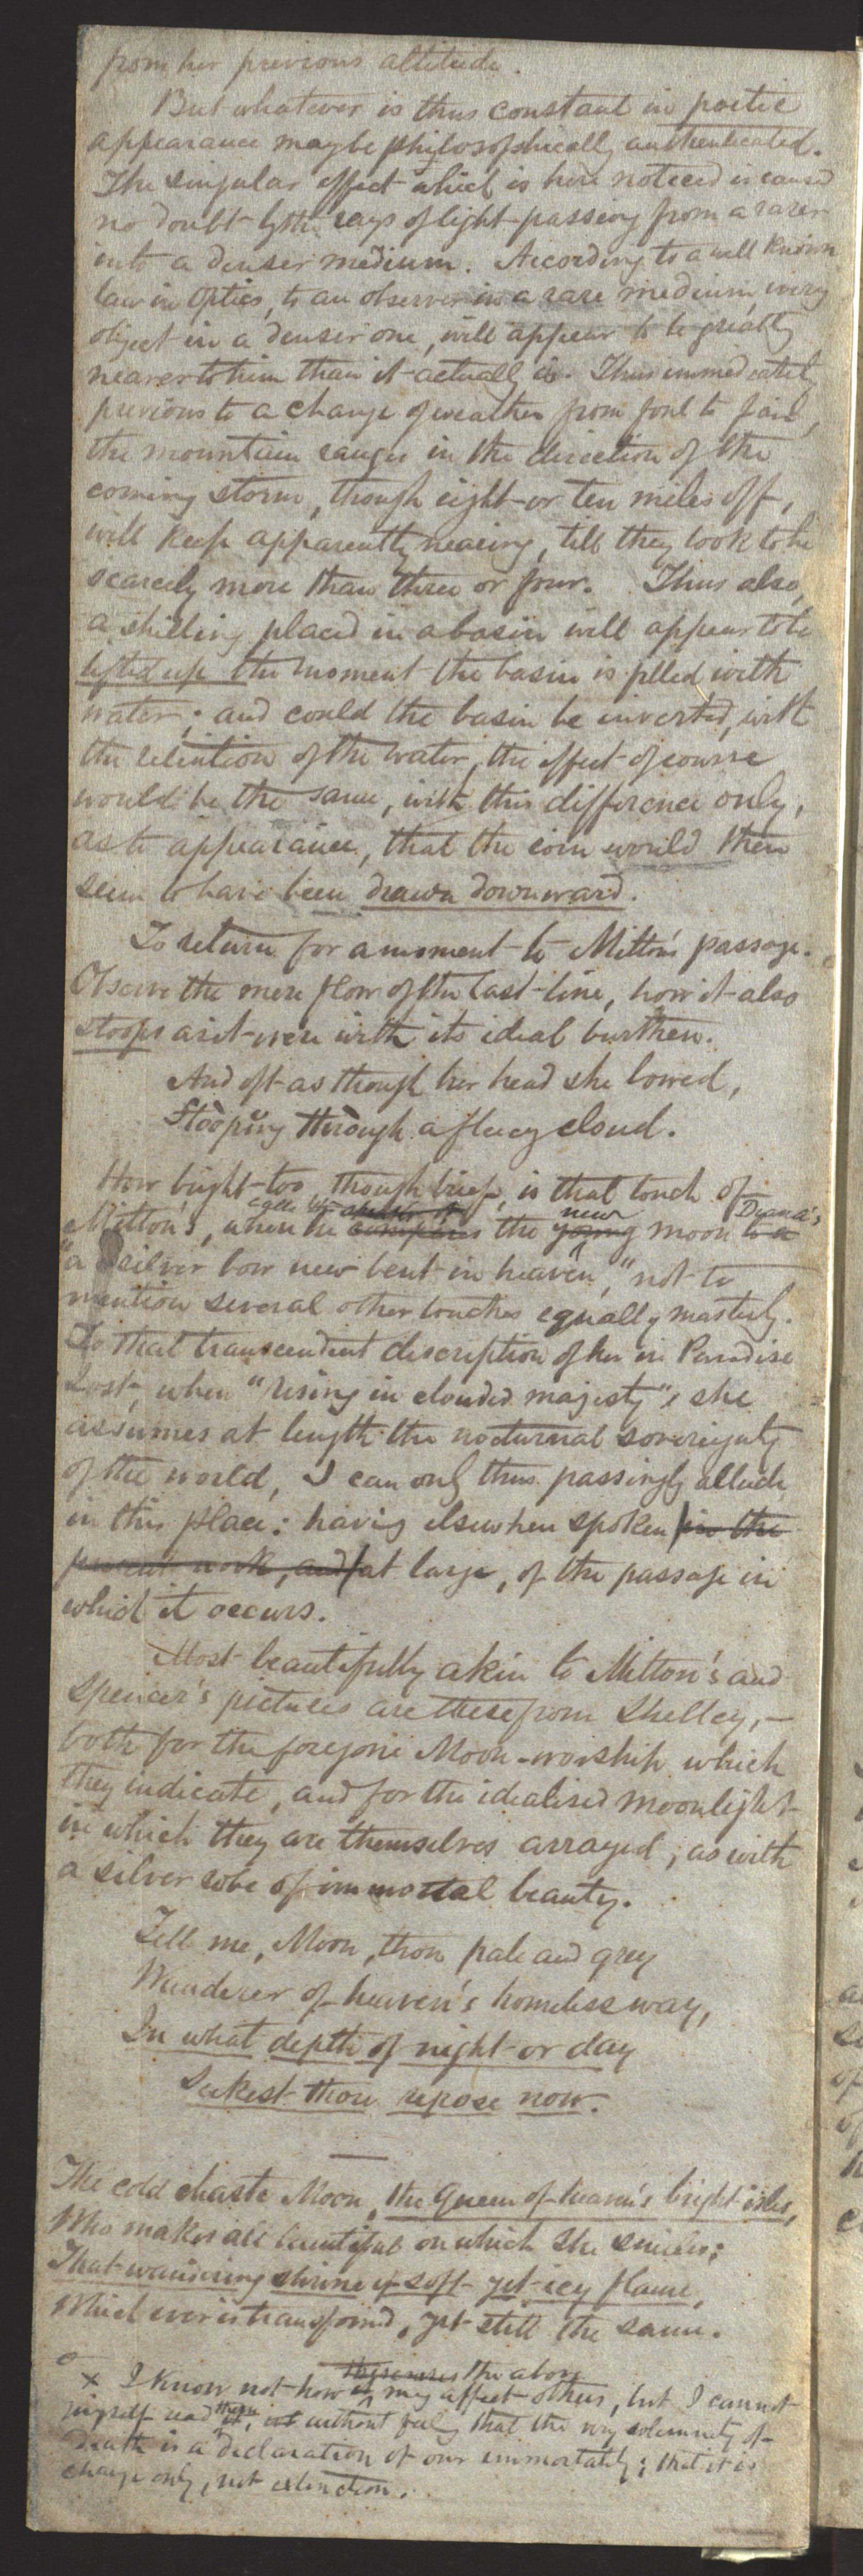 from her previous altitude.
But whatever is thus constant in poetic
appearance may be philosophically authenticated.
The singular effect which is here noticed is caused
no doubt by the rays of light passing from a rarer
into a denser medium. According to a well known
law in Optics, to an observer in a rare medium, every
object in a denser one, will appear to be greatly
nearer to him than it actually is. Thus immediately
previous to a change of weather from foul to fair,
the mountain ranges in the direction of the
coming storm, though eight or ten miles off,
will keep apparently nearing, till they look to be
scarcely more than three or four. Thus also,
a shilling placed in a basin will appear to be
lifted up the moment the basin is filled with
water; and could the basin be inverted, with
the retention of the water, the effect of course
would be the same, with this difference only,
as to appearance, that the coin would then
seem to have been drawn downward.
To return for a moment to Milton's passage.
Observe the mere flow of the last line, how it also
stoops as it were with its ideal burthen.
And oft as though her head she bowed,
Stooping through a fleecy cloud.
How bright too, though brief, is that touch of
Milton's, when he compares the young moon to a
new Diana's
"a silver bow new bent in heaven," not to
mention several other touches equally masterly.
To that transcendent description of her in Paradise
Lost, when "rising in clouded majesty", she
assumes at length the nocturnal sovereignty
of the world, I can only thus passingly allude
in this place: having elsewhere spoken in the
present work, and at large, of the passage in
which it occurs.
Most beautifully akin to Milton's and
Spencer's pictures are these from Shelley,—
both for the foregone Moon-worship which
they indicate, and for the idealised moonlight
in which they are themselves arrayed, as with
a silver robe of immortal beauty.
Tell me, Moon, thou pale and grey
Wanderer of heaven's homeless way,
In what depth of night or day
Seekest thou repose now.
The cold chaste Moon, the Queen of heaven's bright isles,
Who makes all beautiful on which she smiles;
That wandering shrine of soft yet icy flame,
Which ever is transformed, yet still the same.
the above
x I know not how may affect others, but I cannot
myself read them, without feeling that the very solemnity of
Death is a declaration of our immortality; that it is
change only, not extinction.